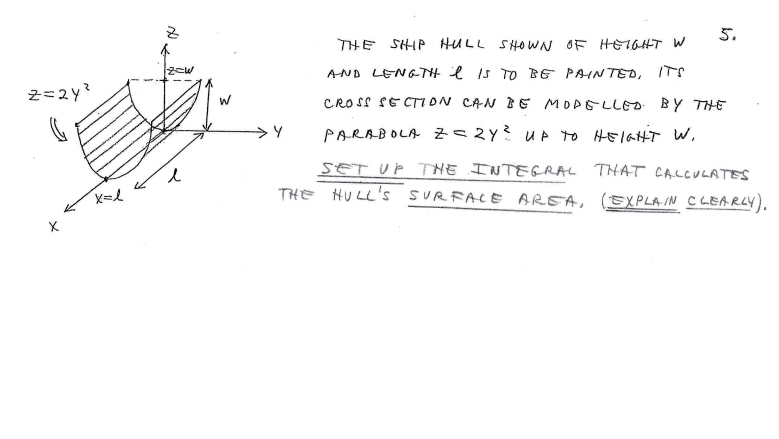 5.
THE SHIP HULL SHOWN OF HEIGHT W
AND LENGTH l IS TO BE PAINTED. ITS
CROSS SECTION CAN BE MODELLED BY THE
PARABOLA Z = 2Y² UP TO HEIGHT W.
SET UP THE INTEGRAL THAT CALCULATES
THE HULL'S SURFACE AREA. (EXPLAIN CLEARLY).
Z
Z=W
Z=2Y²
W
Y
l
X=l
X